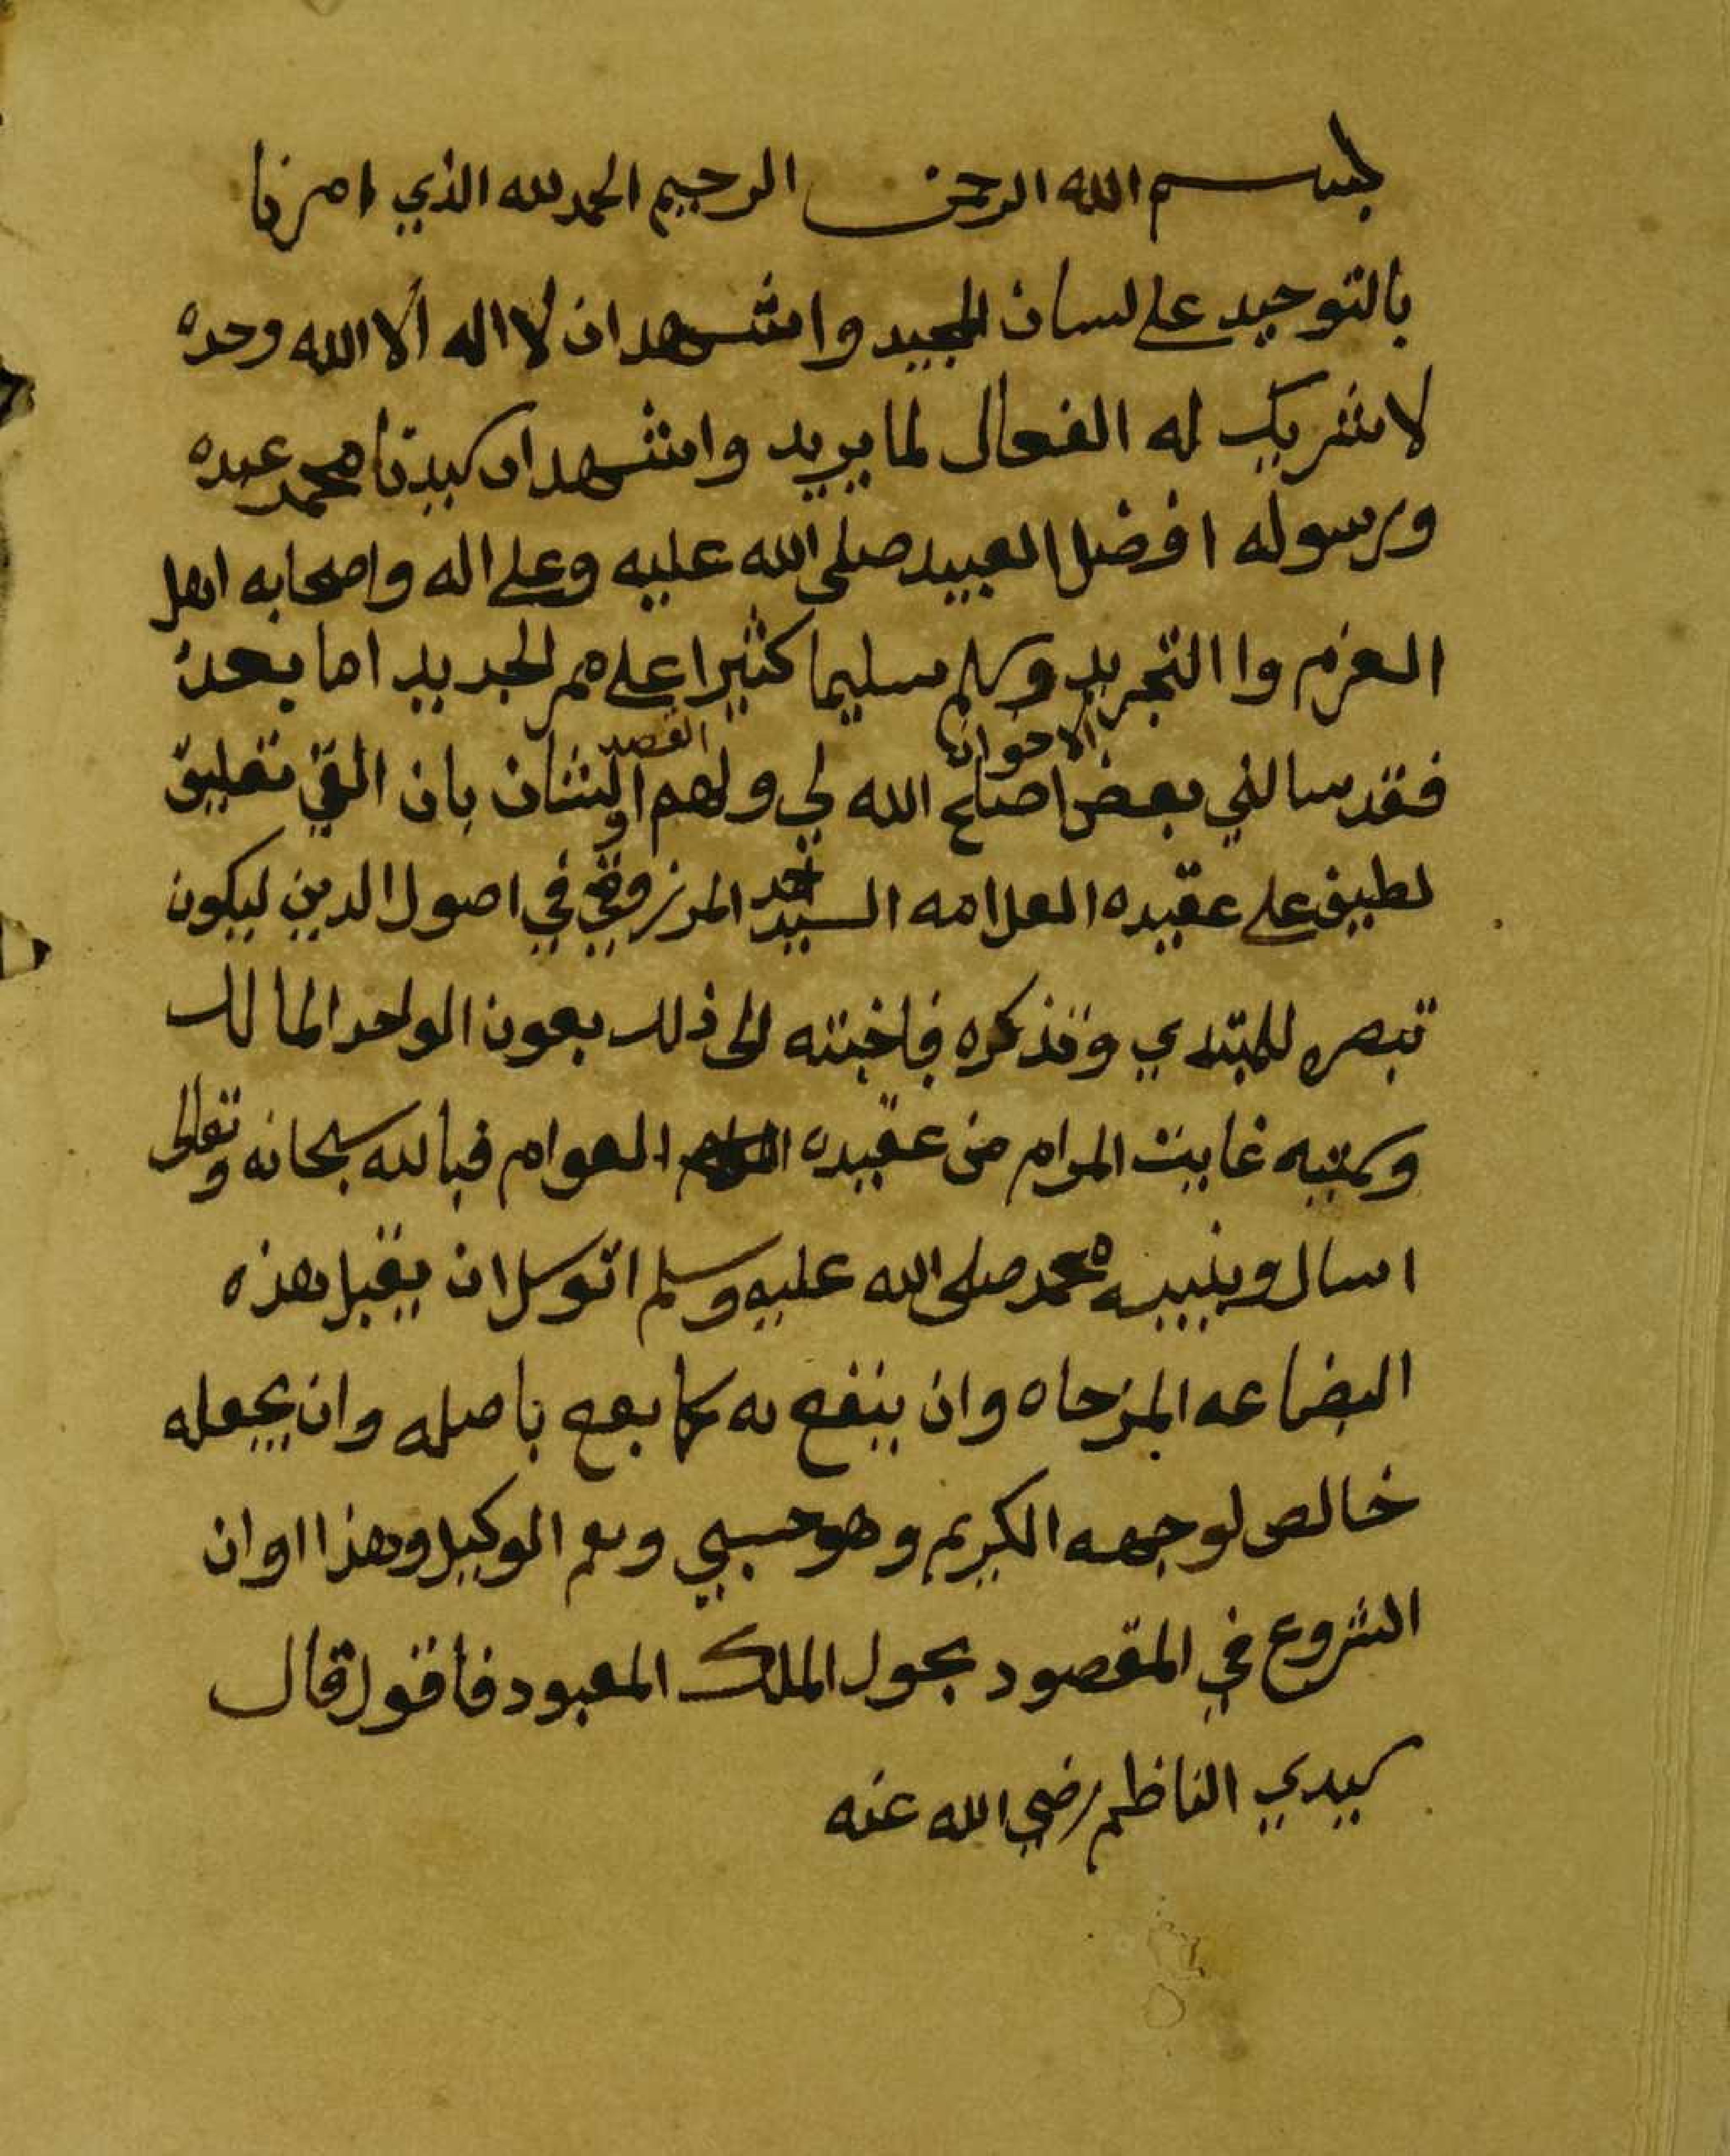 بسم الله الرحمن الرحيم الحمد لله الذي امرنا
بالتوحيد على لسان المجيد واشهد ان لا اله الا الله وحده
لا شريك له الفعال لما يريد واشهد ان سيدنا محمد عبده
ورسوله افضل العبيد صلى الله عليه وعلى اله واصحابه اهل
العزم وا التجريد وسلم تسليما كثيرا على مر الجديد اما بعد
فقد سالني بعض الاخوان اصلح الله لي ولهم القصد والشان بان القي تعليق
لطيف على عقيده العلامه السيد احمد المرزوقي في اصول الدين ليكون
تبصره للمبتدي وتذكره فاجبته الى ذلك بعون الواحد المالك
وسميته غايت المرام من عقيده العوام فبالله سبحانه وتعالى
اسال وبنبيه محمد صلى الله عليه وسلم اتوسل ان يقبل هذه
البضاعه المزجاه وان ينفع به كما نفع باصله وان يجعله
خالص لوجهه الكريم وهو حسبي ونعم الوكيل وهذا اوان
الشروع في المقصود بحول الملك المعبود فاقول قال
سيدي الناظم رضي الله عنه